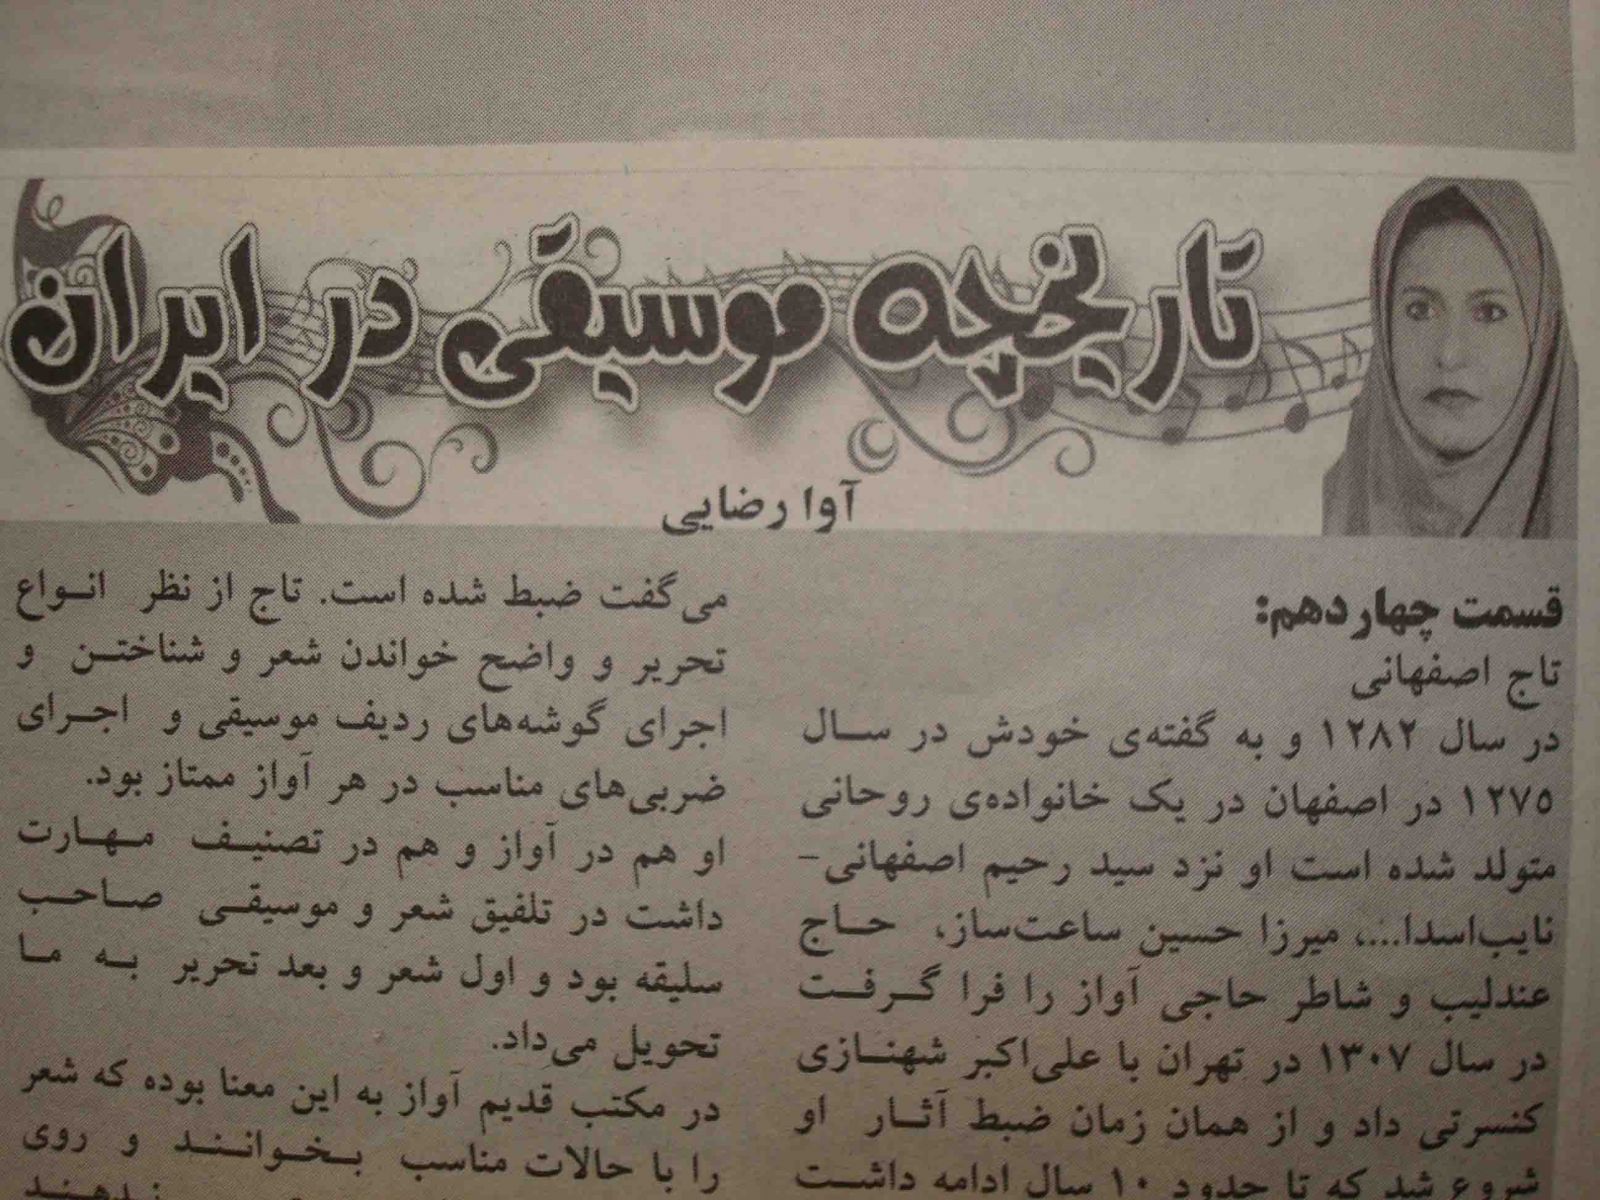 تاریخچه موسیقی در ایران
آوا رضایی
قسمت چهاردهم:
تاج اصفهانی
در سال ۱۲۸۲ و به گفته‌ی خودش در سال
۱۲۷۵ در اصفهان در یک خانواده‌ی روحانی
متولد شده است او نزد سید رحیم اصفهانی-
نایب‌اسدا...، میرزا حسین ساعت‌ساز، حاج
عندلیب و شاطر حاجی آواز را فرا گرفت
در سال ۱۳۰۷ در تهران با علی‌اکبر شهنازی
کنسرتی داد و از همان زمان ضبط آثار او
شروع شد که تا حدود ۱۰ سال ادامه داشت
می‌گفت ضبط شده است. تاج از نظر انواع
تحریر و واضح خواندن شعر و شناختن و
اجرای گوشه‌های ردیف موسیقی و اجرای
ضربی‌های مناسب در هر آواز ممتاز بود.
او هم در آواز و هم در تصنیف مهارت
داشت در تلفیق شعر و موسیقی صاحب
سلیقه بود و اول شعر و بعد تحریر به ما
تحویل می‌داد.
در مکتب قدیم آواز به این معنا بوده که شعر
را با حالات مناسب بخوانند و روی